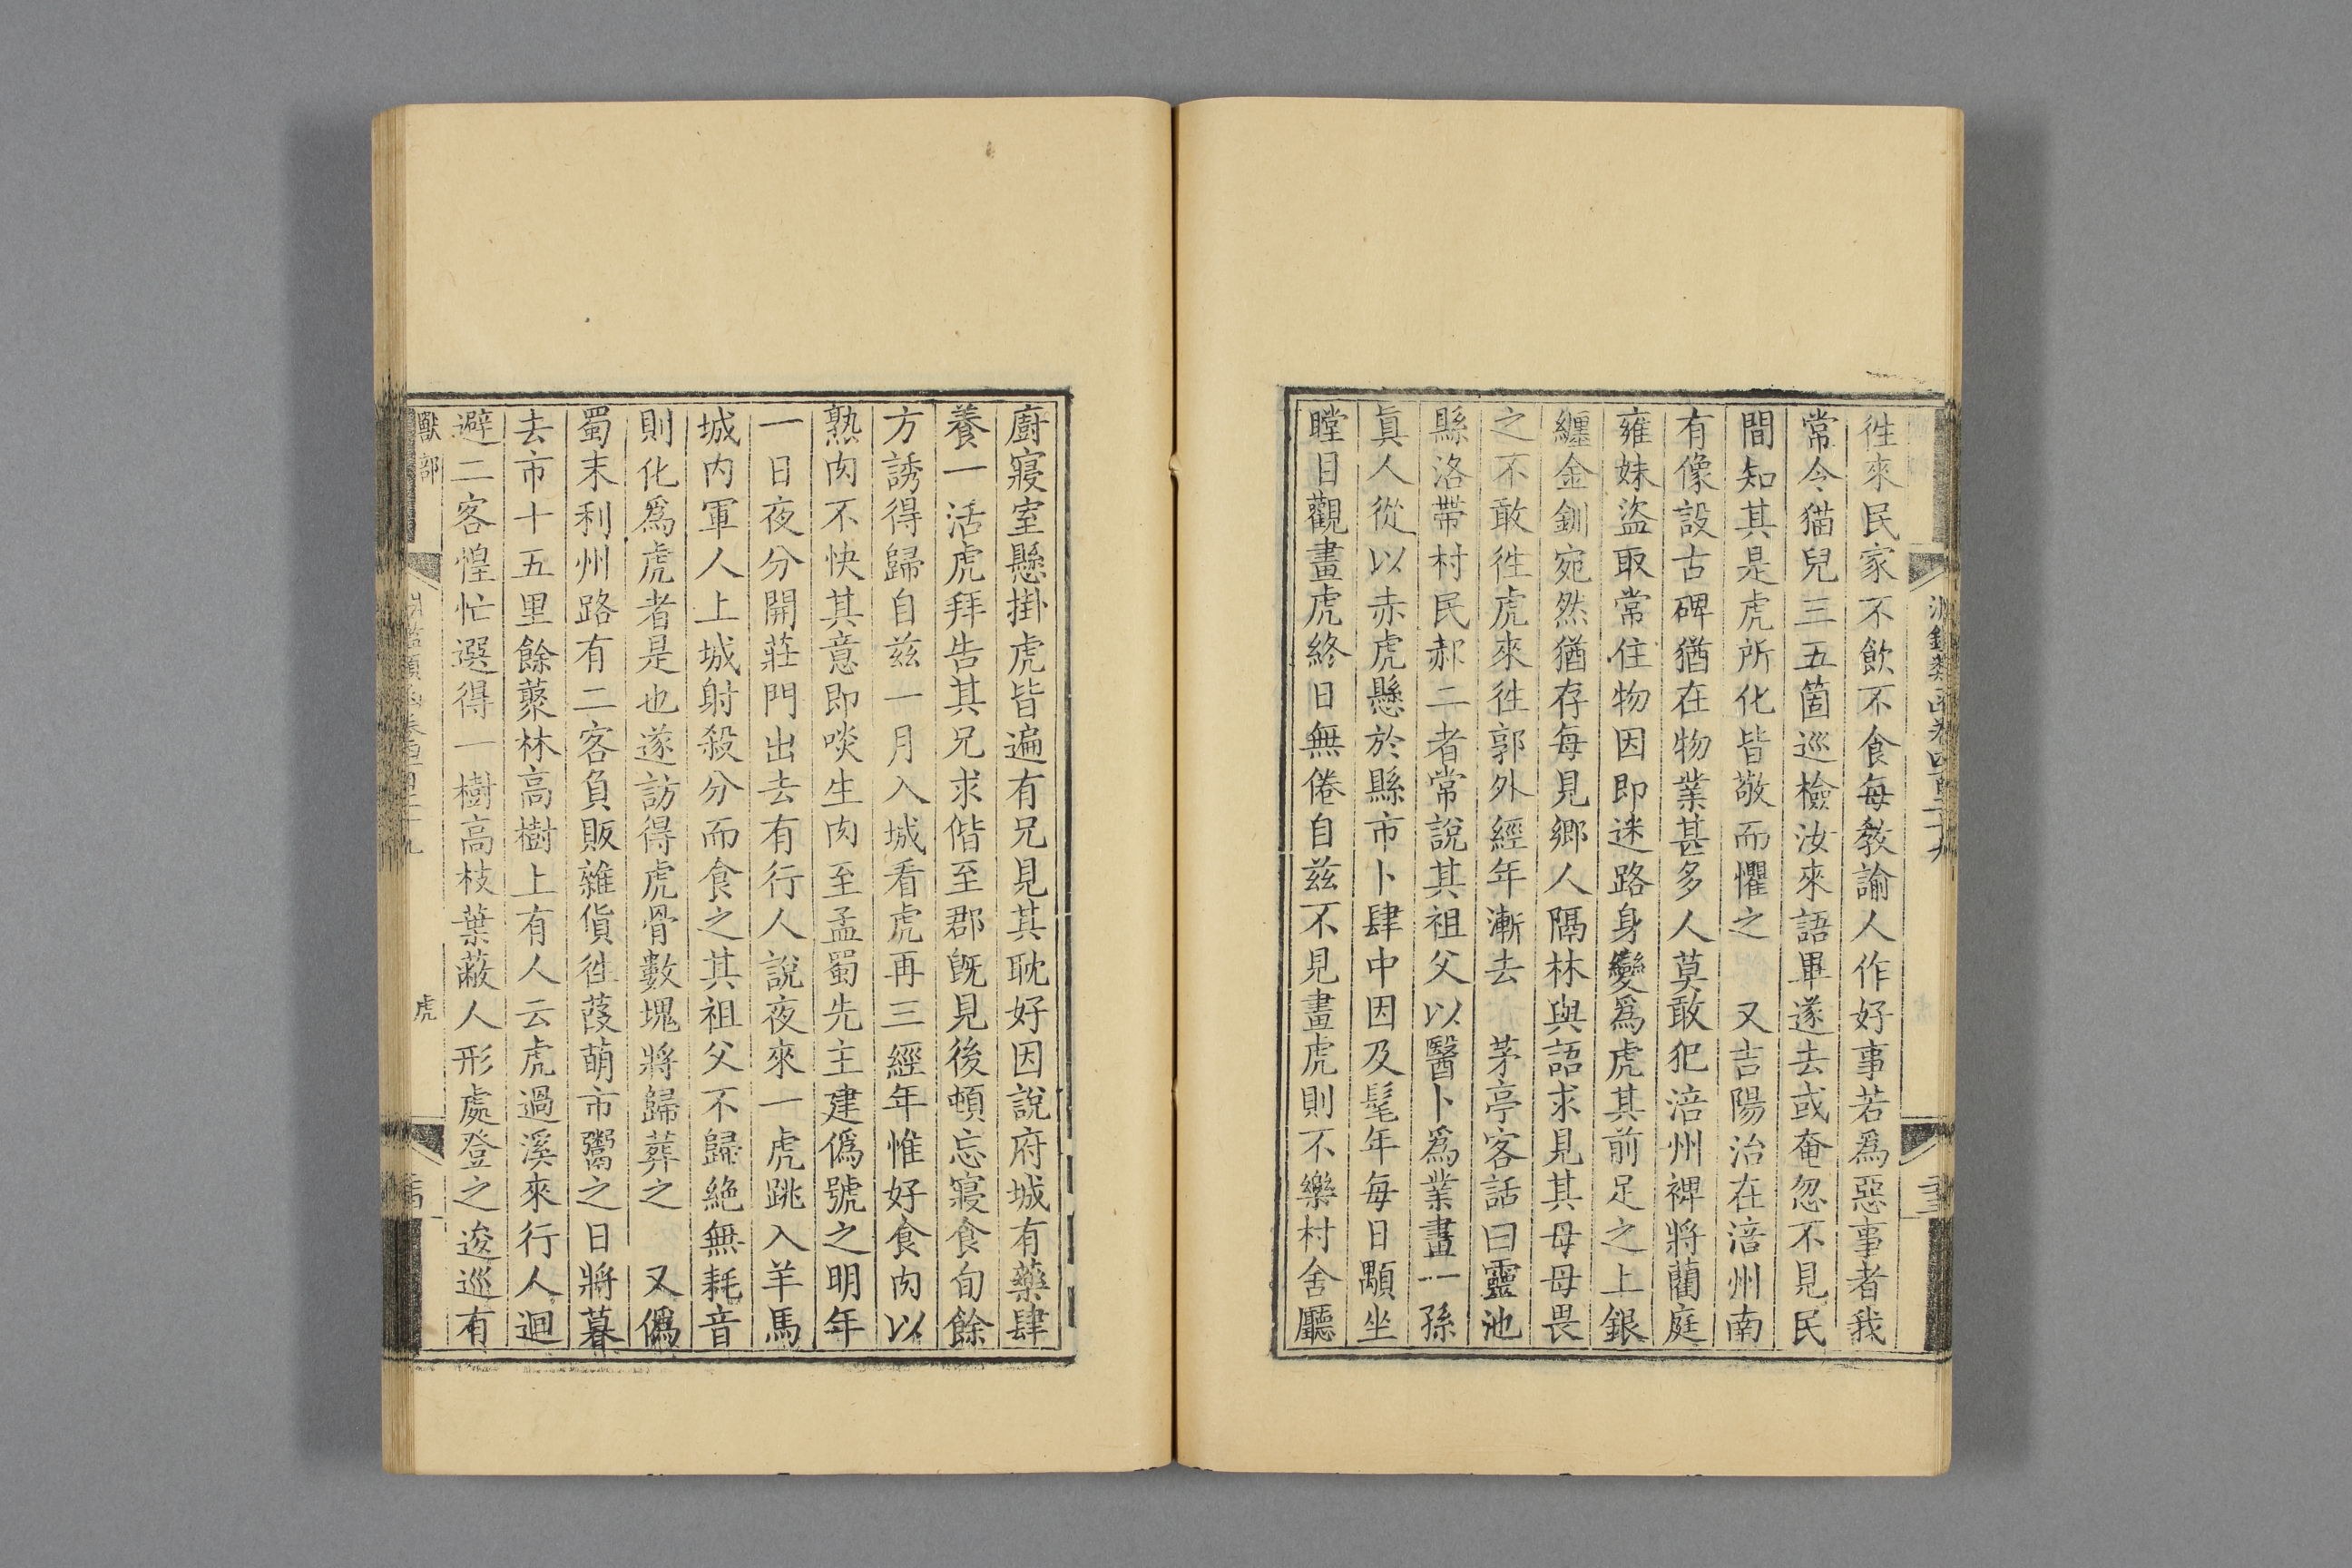 徃來民家不飲不食每教諭人作好事若爲惡事者我
常令猫兒三五箇巡檢汝來語畢遂去或奄忽不見民
間知其是虎所化皆敬而懼之　又吉陽治在涪州南
有像設古碑猶在物業甚多人莫敢犯涪州裨將藺庭
雍妹盜取常住物因即迷路身變爲虎其前足之上銀
纏金釧宛然猶存每見鄉人隔林與語求見其母母畏
之不敢徃虎來徃郭外經年漸去　茅亭客話曰靈池
縣洛帶村民郝二者常說其祖父以醫卜爲業畫一孫
眞人從以赤虎懸於縣市卜肆中因及髦年每日顒坐
瞠目觀畫虎終日無倦自兹不見畫虎則不樂村舍廳
廚寢室懸掛虎皆遍有兄見其耽好因說府城有藥肆
養一活虎拜告其兄求偕至郡旣見後頓忘寢食旬餘
方誘得歸自兹一月入城看虎再三經年惟好食肉以
熟肉不快其意即啖生肉至孟蜀先主建僞號之明年
一日夜分開莊門出去有行人說夜來一虎跳入羊馬
城內軍人上城射殺分而食之其祖父不歸絶無耗音
則化爲虎者是也遂訪得虎骨數塊將歸葬之　又僞
蜀末利州路有二客負販雜貨徃葭萌市鬻之日將暮
去市十五里餘藂林高樹上有人云虎過溪來行人迴
避二客惶忙選得一樹高枝葉蔽人形處登之逡巡有
獸部
虎